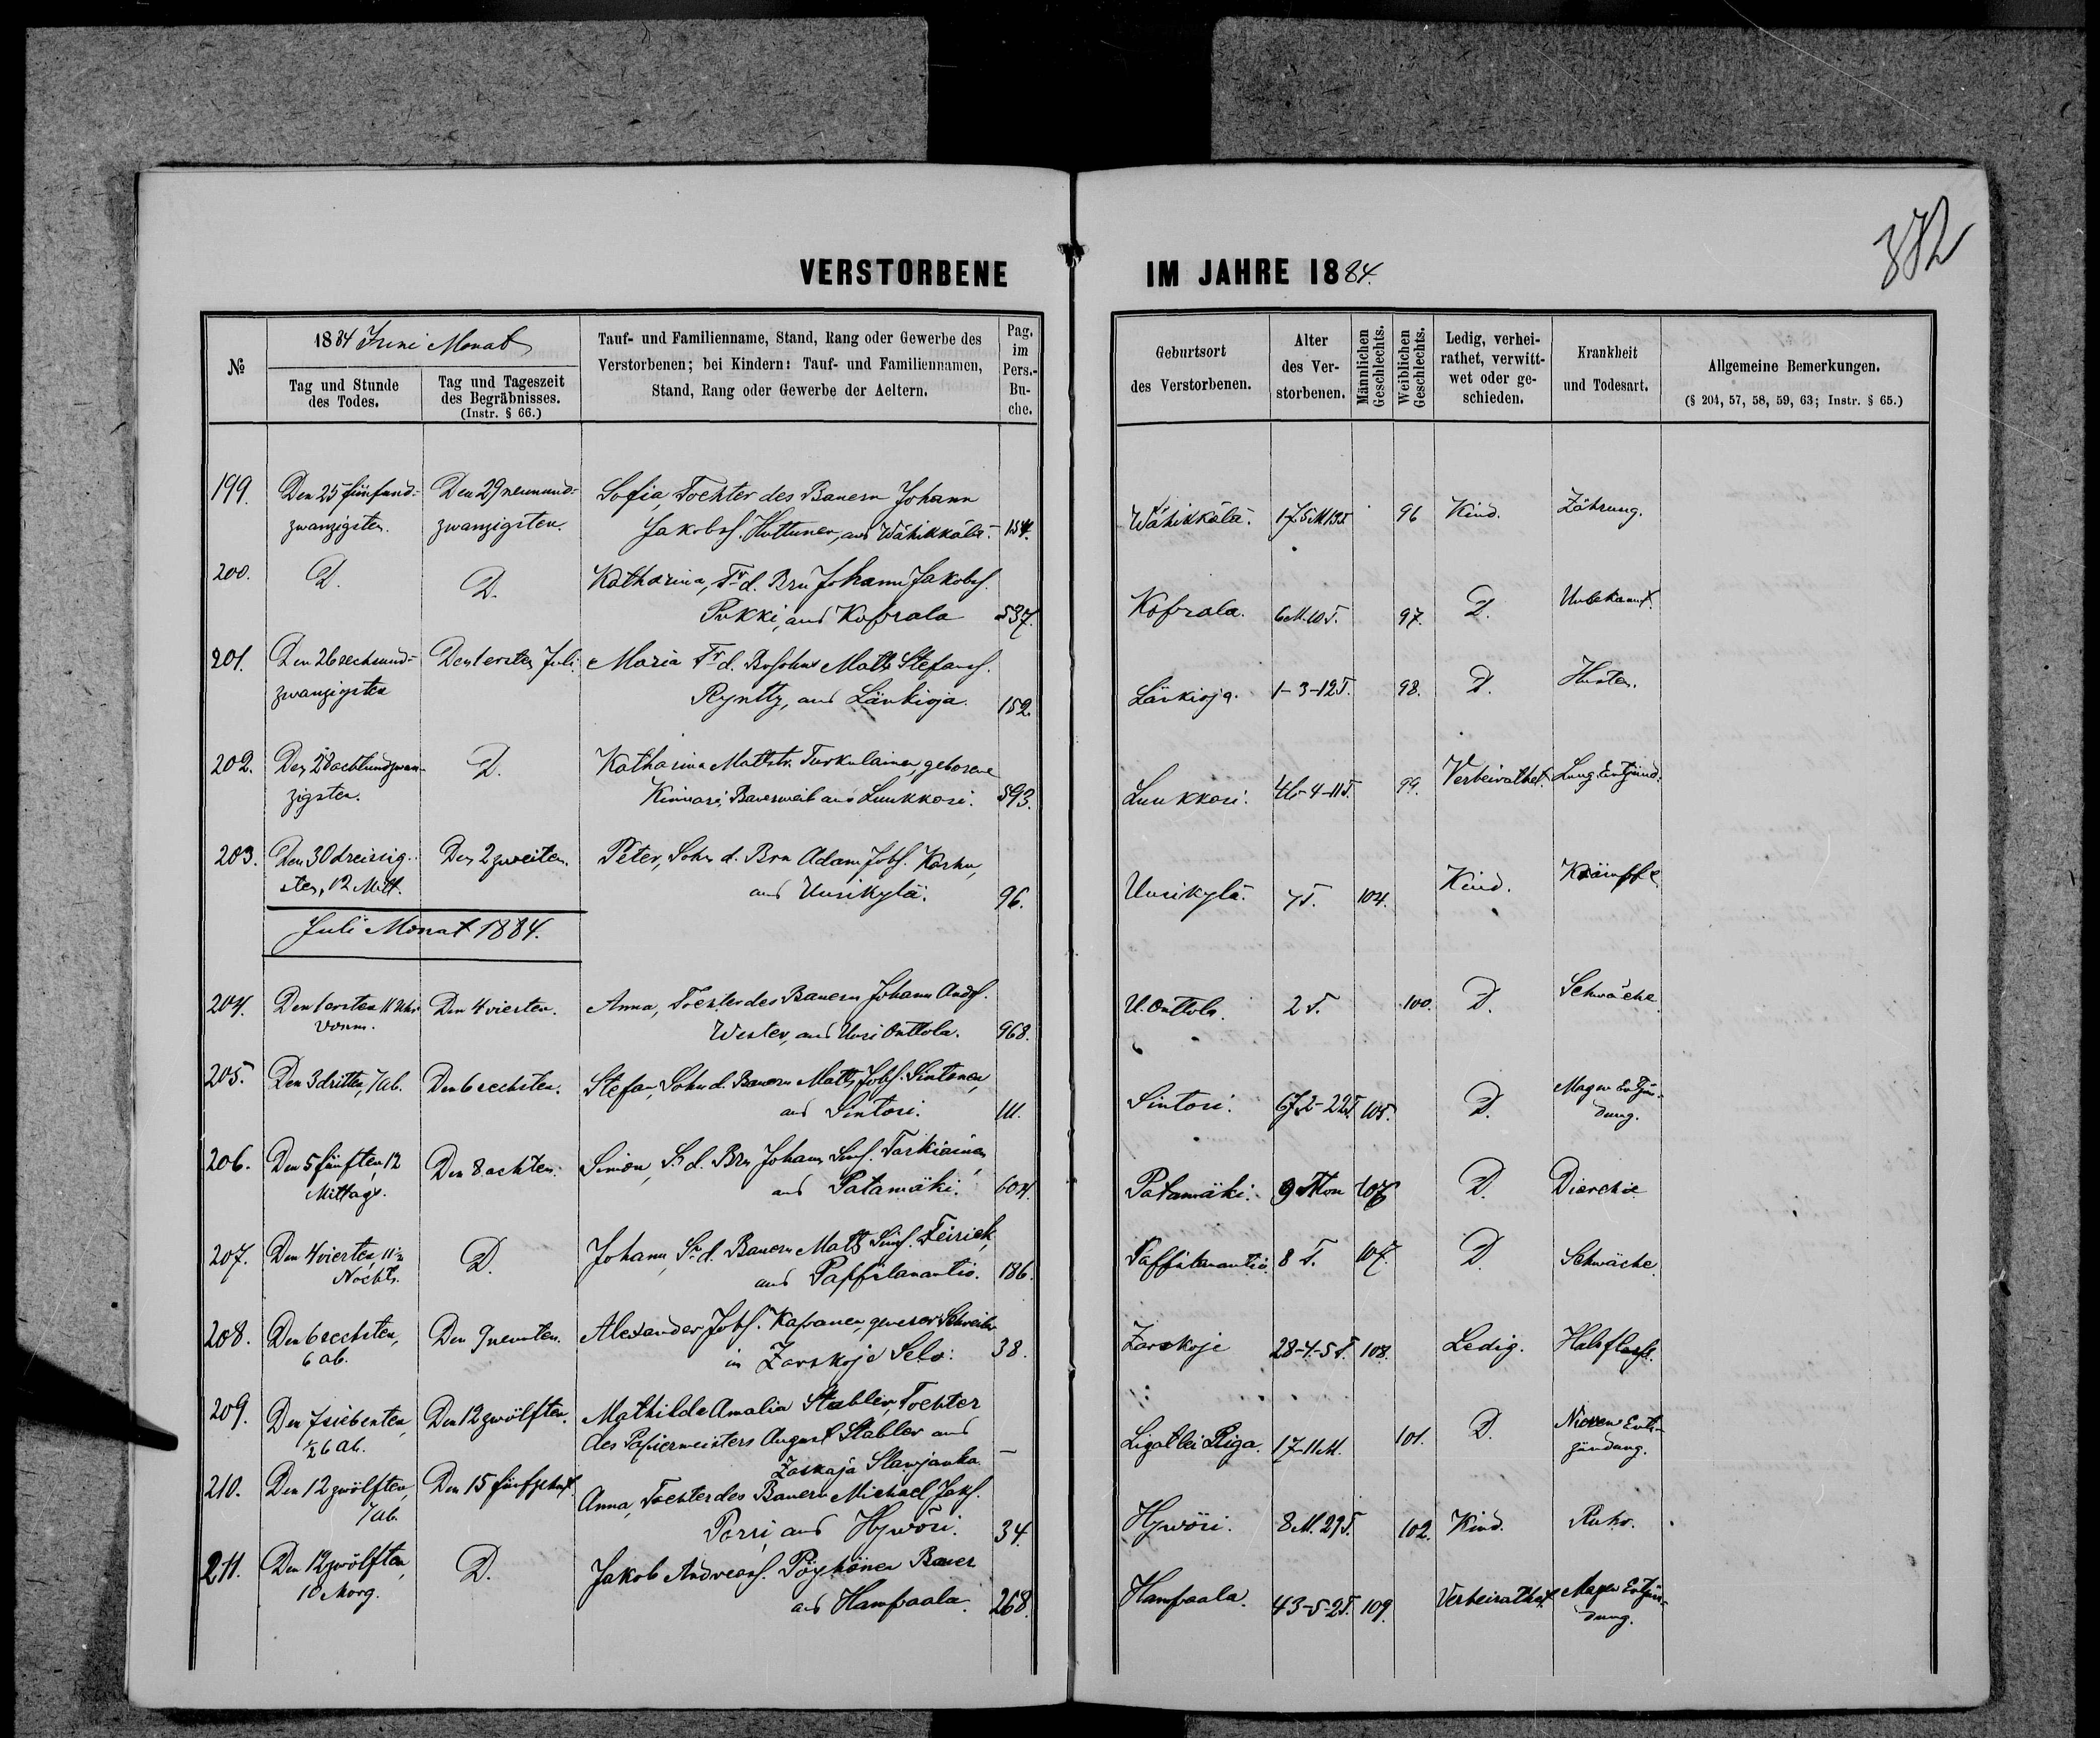 382
VERSTORBENE IM JAHRE 1884.
№
1884 Juni Monat
Tag und Stunde
des Todes.
Tag und Tageszeit
des Begräbnisses.
(Instr. § 66.)
Tauf- und Familienname, Stand, Rang oder Gewerbe des
Verstorbenen; bei Kindern: Tauf- und Familiennamen,
Stand, Rang oder Gewerbe der Aeltern.
Pag.
im
Pers.-
Bu-
che.
Geburtsort
des Verstorbenen.
Alter
des Ver-
storbenen.
Männlichen
Geschlechts.
Weiblichen
Geschlechts.
Ledig, verhei-
rathet, verwitt-
wet oder ge-
schieden.
Krankheit
und Todesart.
Allgemeine Bemerkungen.
(§ 204, 57, 58, 59, 63; Instr. § 65.)
199. Den 25 fünfund- Den 29 neunund- Sofia, Tochter des Bauern Johann
zwanzigsten. zwanzigsten. Jakobs. Huttunen, aus Wähikkälä. 154. Wähikkälä. 1J.5M13T. 96 Kind. Zährung.
200. D. D. Katharina, Tr d. Brn Johann Jakobs.
Pukki, aus Koprala 537. Koprala. 6M.10T. 97. D. Unbekannt.
201. Den 26 sechsund- Den 1 ersten Juli Maria Tr d. Matts Stefans.
zwanzigsten Ryntty, aus Länkioja. 152. Länkioja. 1-3-12T. 98. D. Husten.
202. Den 28 achtundzwan- D. Katharina Mattstr. Turkulainen, geborene
zigsten. Kinnari, Bauerweib aus Luukkosi. 593. Luukkosi. 46-4-11T. 99. Verheirathet. Lung. Entzünd.
203. Den 30 dreissig- Den 2 zweiten. Peter, Sohn d. Brn Adam Johs. Karhu,
sten, 12 Mitt. aus Uusikylä. 96. Uusikylä. 7T. 104. Kind. Krämpfe
Juli Monat 1884.
204. Den 1 ersten 11 Uhr Den 4 vierten. Anna, Tochter des Bauern Johann Ands.
Vorm. Wester, aus Uusi Onttola. 968. U. Onttola. 2 T. 100. D. Schwäche
205. Den 3 dritten, 7 ab. Den 6 sechsten. Stefan, Sohn d. Bauern Matts Johs. Sintonen,
aus Sintosi. 111. Sintosi. 6J.2-22T. 105. D. Magen Entzün-
dung.
206. Den 5 fünften, 12 Den 8 achten. Simon, Sn d. Brn Johann Sims. Taskiainen,
Mittags. aus Patamäki. 604. Patamäki. 9 Mon 106 D. Diarrhöe
207. Den 4 vierten, 11 D. Johann, Sn d. Bauern Matts Sims. Teiriek,
Nachts. aus Pappilanantio. 186. Pappilanantio. 8 T. 107. D. Schwäche.
208. Den 6 sechsten, Den 9 neunten. Alexander Johs. Kapanen, gewesener Schreiber
6 ab. in Zarskoje Selo. 38. Zarskoje 28-4-5T. 108. Ledig.
209. Den 7 siebenten, Den 12 zwölften. Mathilde Amalia Stabler, Tochter
½ 6 ab. des Papiermeisters August Stabler aus
Slawjanka. — Ligat bei Riga. 17-11M. 101. D. Nieren Ent-
zündung.
210. Den 12 zwölften, Den 15 fünfzehnt. Anna, Tochter des Bauern Michael Jaks.
7 ab. Porri, aus Hywösi. 34. Hywösi. 8M.29T. 102. Kind. Ruhr.
211. Den 12 zwölften, D. Jakob Andreas. Pöyhönen Bauer
10 Morg. aus Hampaala. 268. Hampaala. 43-5-2T. 109. Verheirathet Magen Entzün-
dung.